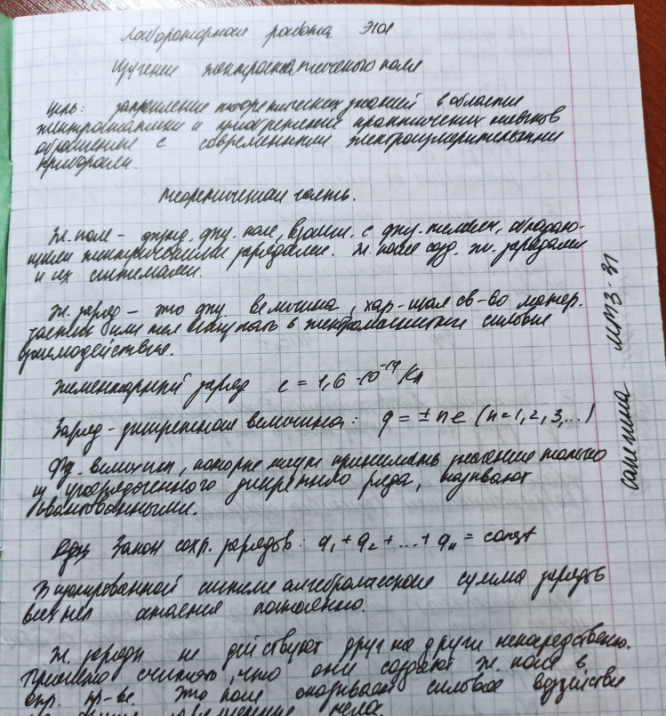 Лабораторная работа Э101
Изучение электростатического поля
Цель: закрепление теоретических знаний в области
электростатики и приобретение практических навыков
обращение с современными электроизмерительными
приборами.
Теоретическая часть.
Эл. поле - фунд. физ. поле, взаим. с физ. телами, обладаю-
щими электрическими зарядами. Эл. поле созд. эл. зарядами
и их системами.
Эл. заряд - это физ. величина, хар-щая св-во матер.
частиц или тел вступать в электромагнитные силовые
взаимодействие.
Элементарный заряд e = 1,6·10⁻¹⁹ Кл
Заряд - дискретная величина: q = ± ne (n=1,2,3,...)
Физ. величины, которые могут принимать значение только
из упорядоченного дискретного ряда, называют
квантованными.
Закон сохр. зарядов: q₁ + q₂ + ... + qₙ = const
В изолированной системе алгебраическая сумма зарядов
всех тел остается постоянно.
Эл. заряды не действуют друг на друга непосредственно.
Принято считать, что они создают эл. поле в
окр. пр-ве. Это поле оказывает силовое воздействие
тела.
Сапегина МТЗ-31